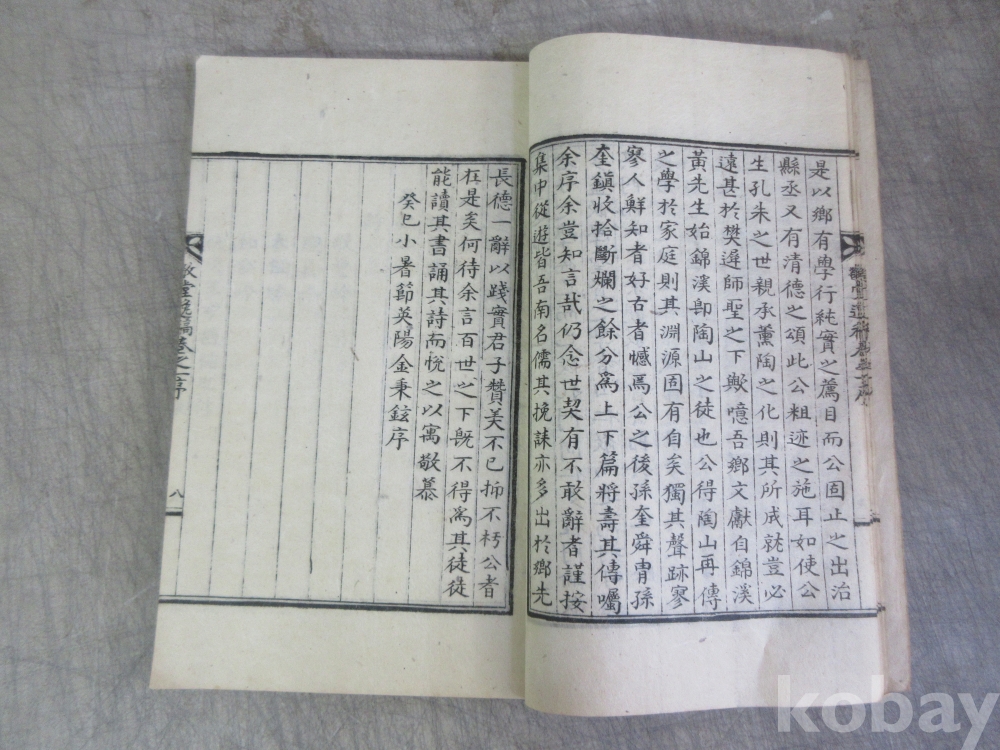 是以鄉有學行純實之薦目而公固止之出治
縣丞又有清德之頌此公粗迹之施耳如使公
生孔朱之世親承薰陶之化則其所成就豈必
遠甚於樊遲師聖之下歟噫吾鄉文獻自錦溪
黃先生始錦溪卽陶山之徒也公得陶山再傳
之學於家庭則其淵源固有自矣獨其聲跡寥
寥人鮮知者好古者憾焉公之後孫奎舜胄孫
奎鎭收拾斷爛之餘分爲上下篇將壽其傳囑
余序余豈知言哉仍念世契有不敢辭者謹按
集中從遊皆吾南名儒其挽誄亦多出於鄉先
長德一辭以踐實君子贊美不已抑不朽公者
在是矣何待余言百世之下旣不得爲其徒從
能讀其書誦其詩而悅之以寓敬慕
癸巳小暑節英陽金秉鉉序
堂逸稿卷之一序
八
kobay